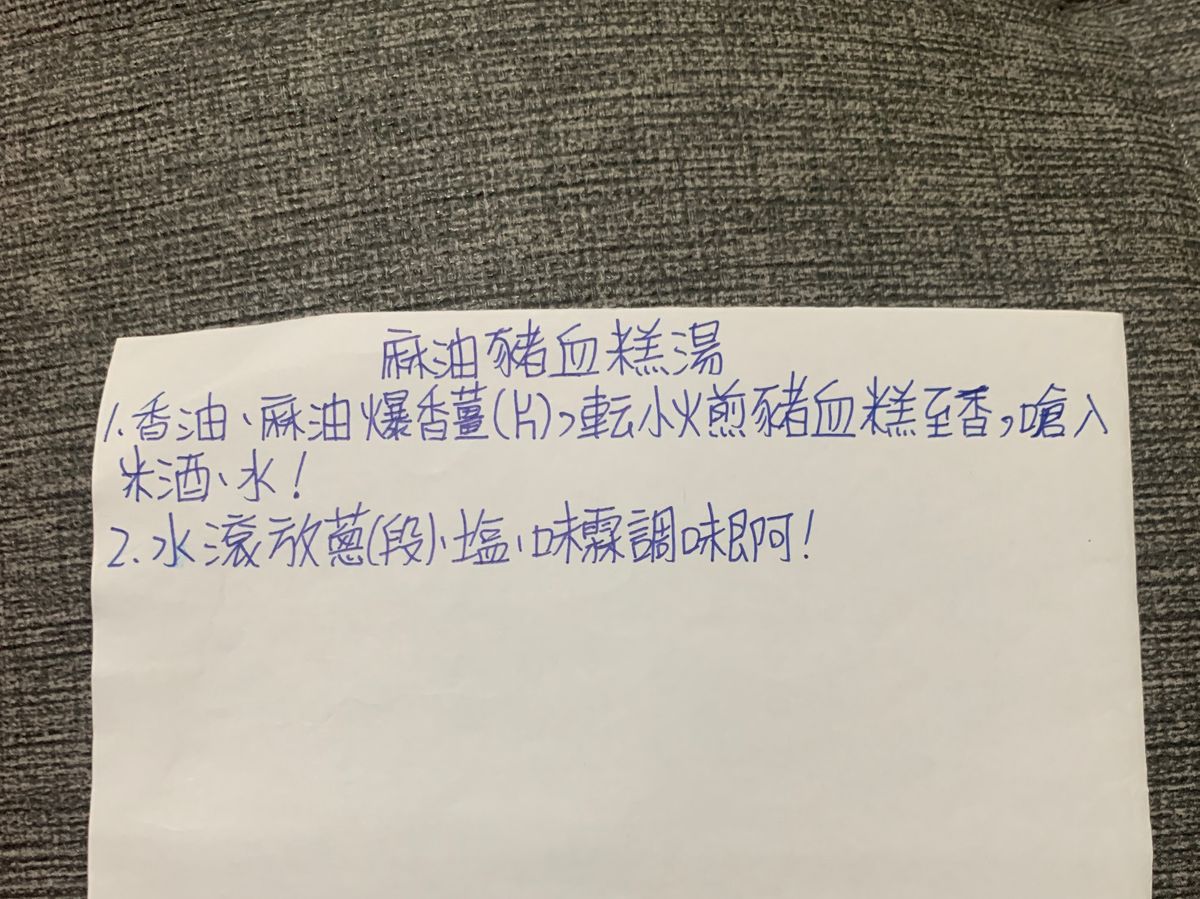 麻油豬血糕湯
1.香油、麻油爆香薑(片),転小火煎豬血糕至香,嗆入
米酒、水!
2.水滾放蔥(段)、塩、味霖調味即可!